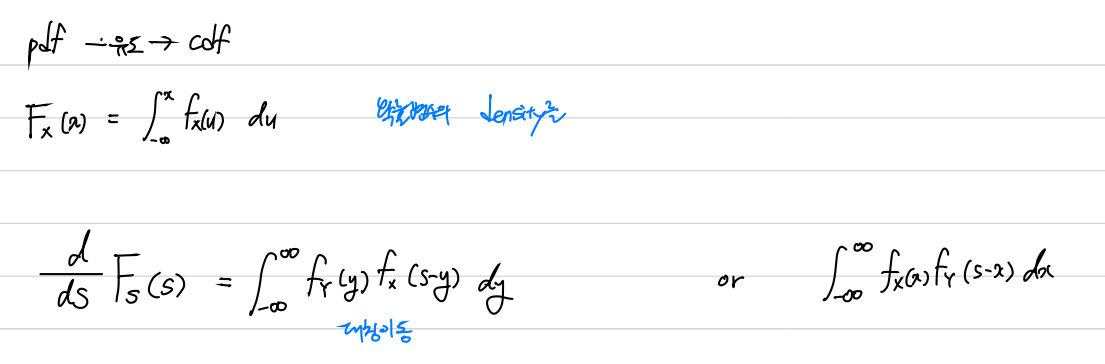 pdf —유도→ cdf
F_X(x) = ∫_{-∞}^{x} f_X(u) du 확률변수의 density를
d/ds F_S(s) = ∫_{-∞}^{∞} f_Y(y) f_X(s-y) dy or ∫_{-∞}^{∞} f_X(x) f_Y(s-x) dx
대칭이동